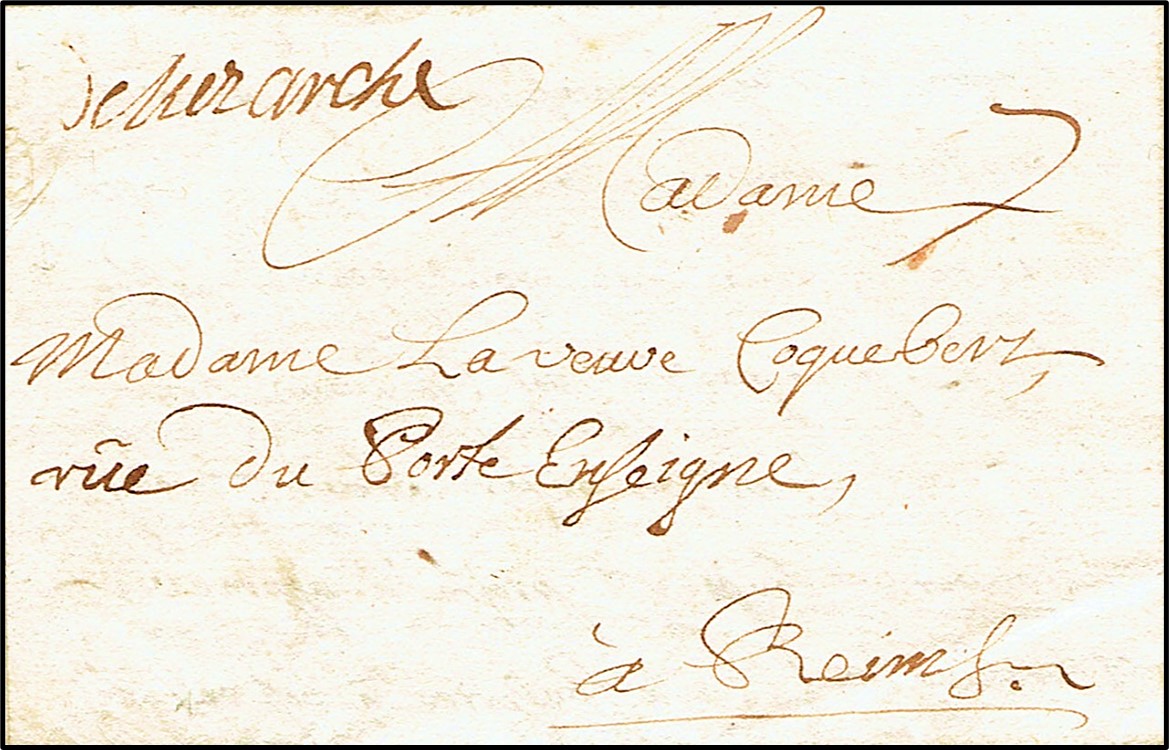 Madame
Madame La veuve Coquebert,
rüe du Porte Enseigne,
à Reims.